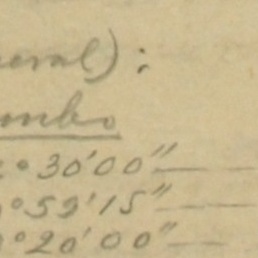 eral):
mbo
° 30' 00" —
° 59' 15" —
° 20' 00" —